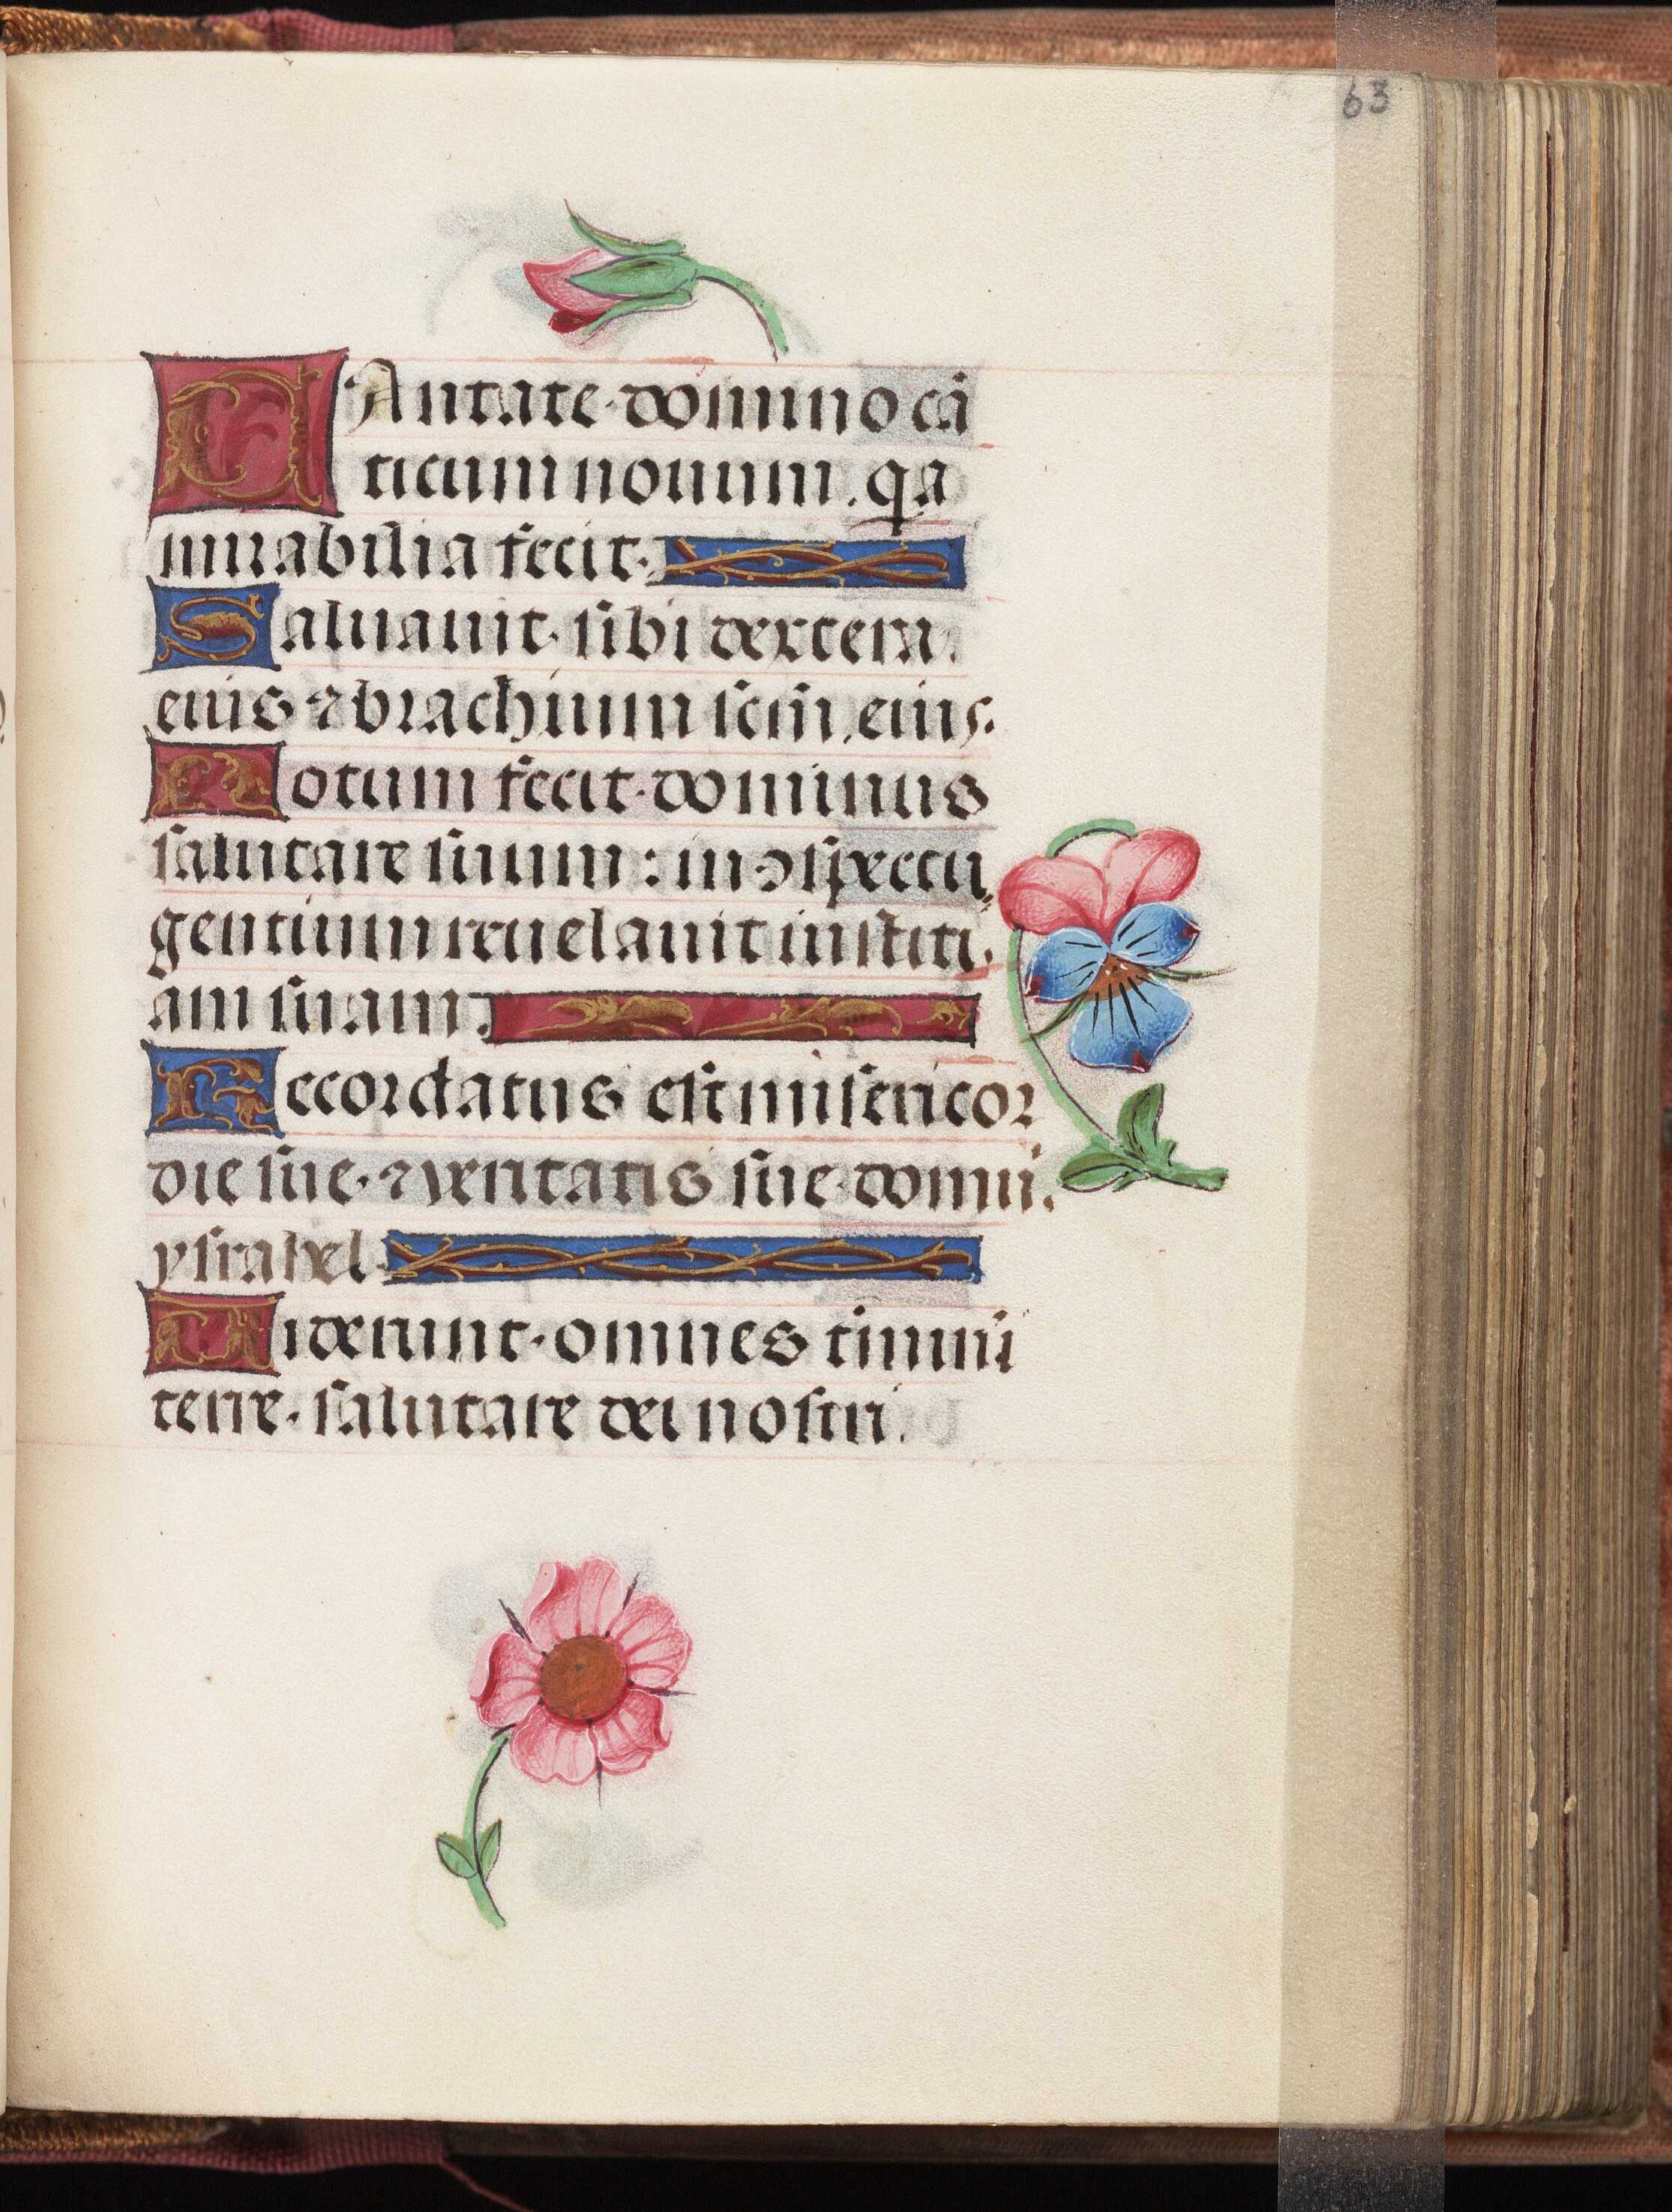 63
CAntate domino cā
ticum nouum. qa
mirabilia fecit.
Saluauit sibi dextera.
eius ⁊ brachium scm̄ eius.
Notum fecit dominus
salutare suum: in ɔspectu
gentium reuelauit iusti
am suam.
Recordatus est misericor
die sue. ⁊ veritatis sue domui.
ysrahel.
Uiderunt omnes termini
terre. salutare dei nostri.